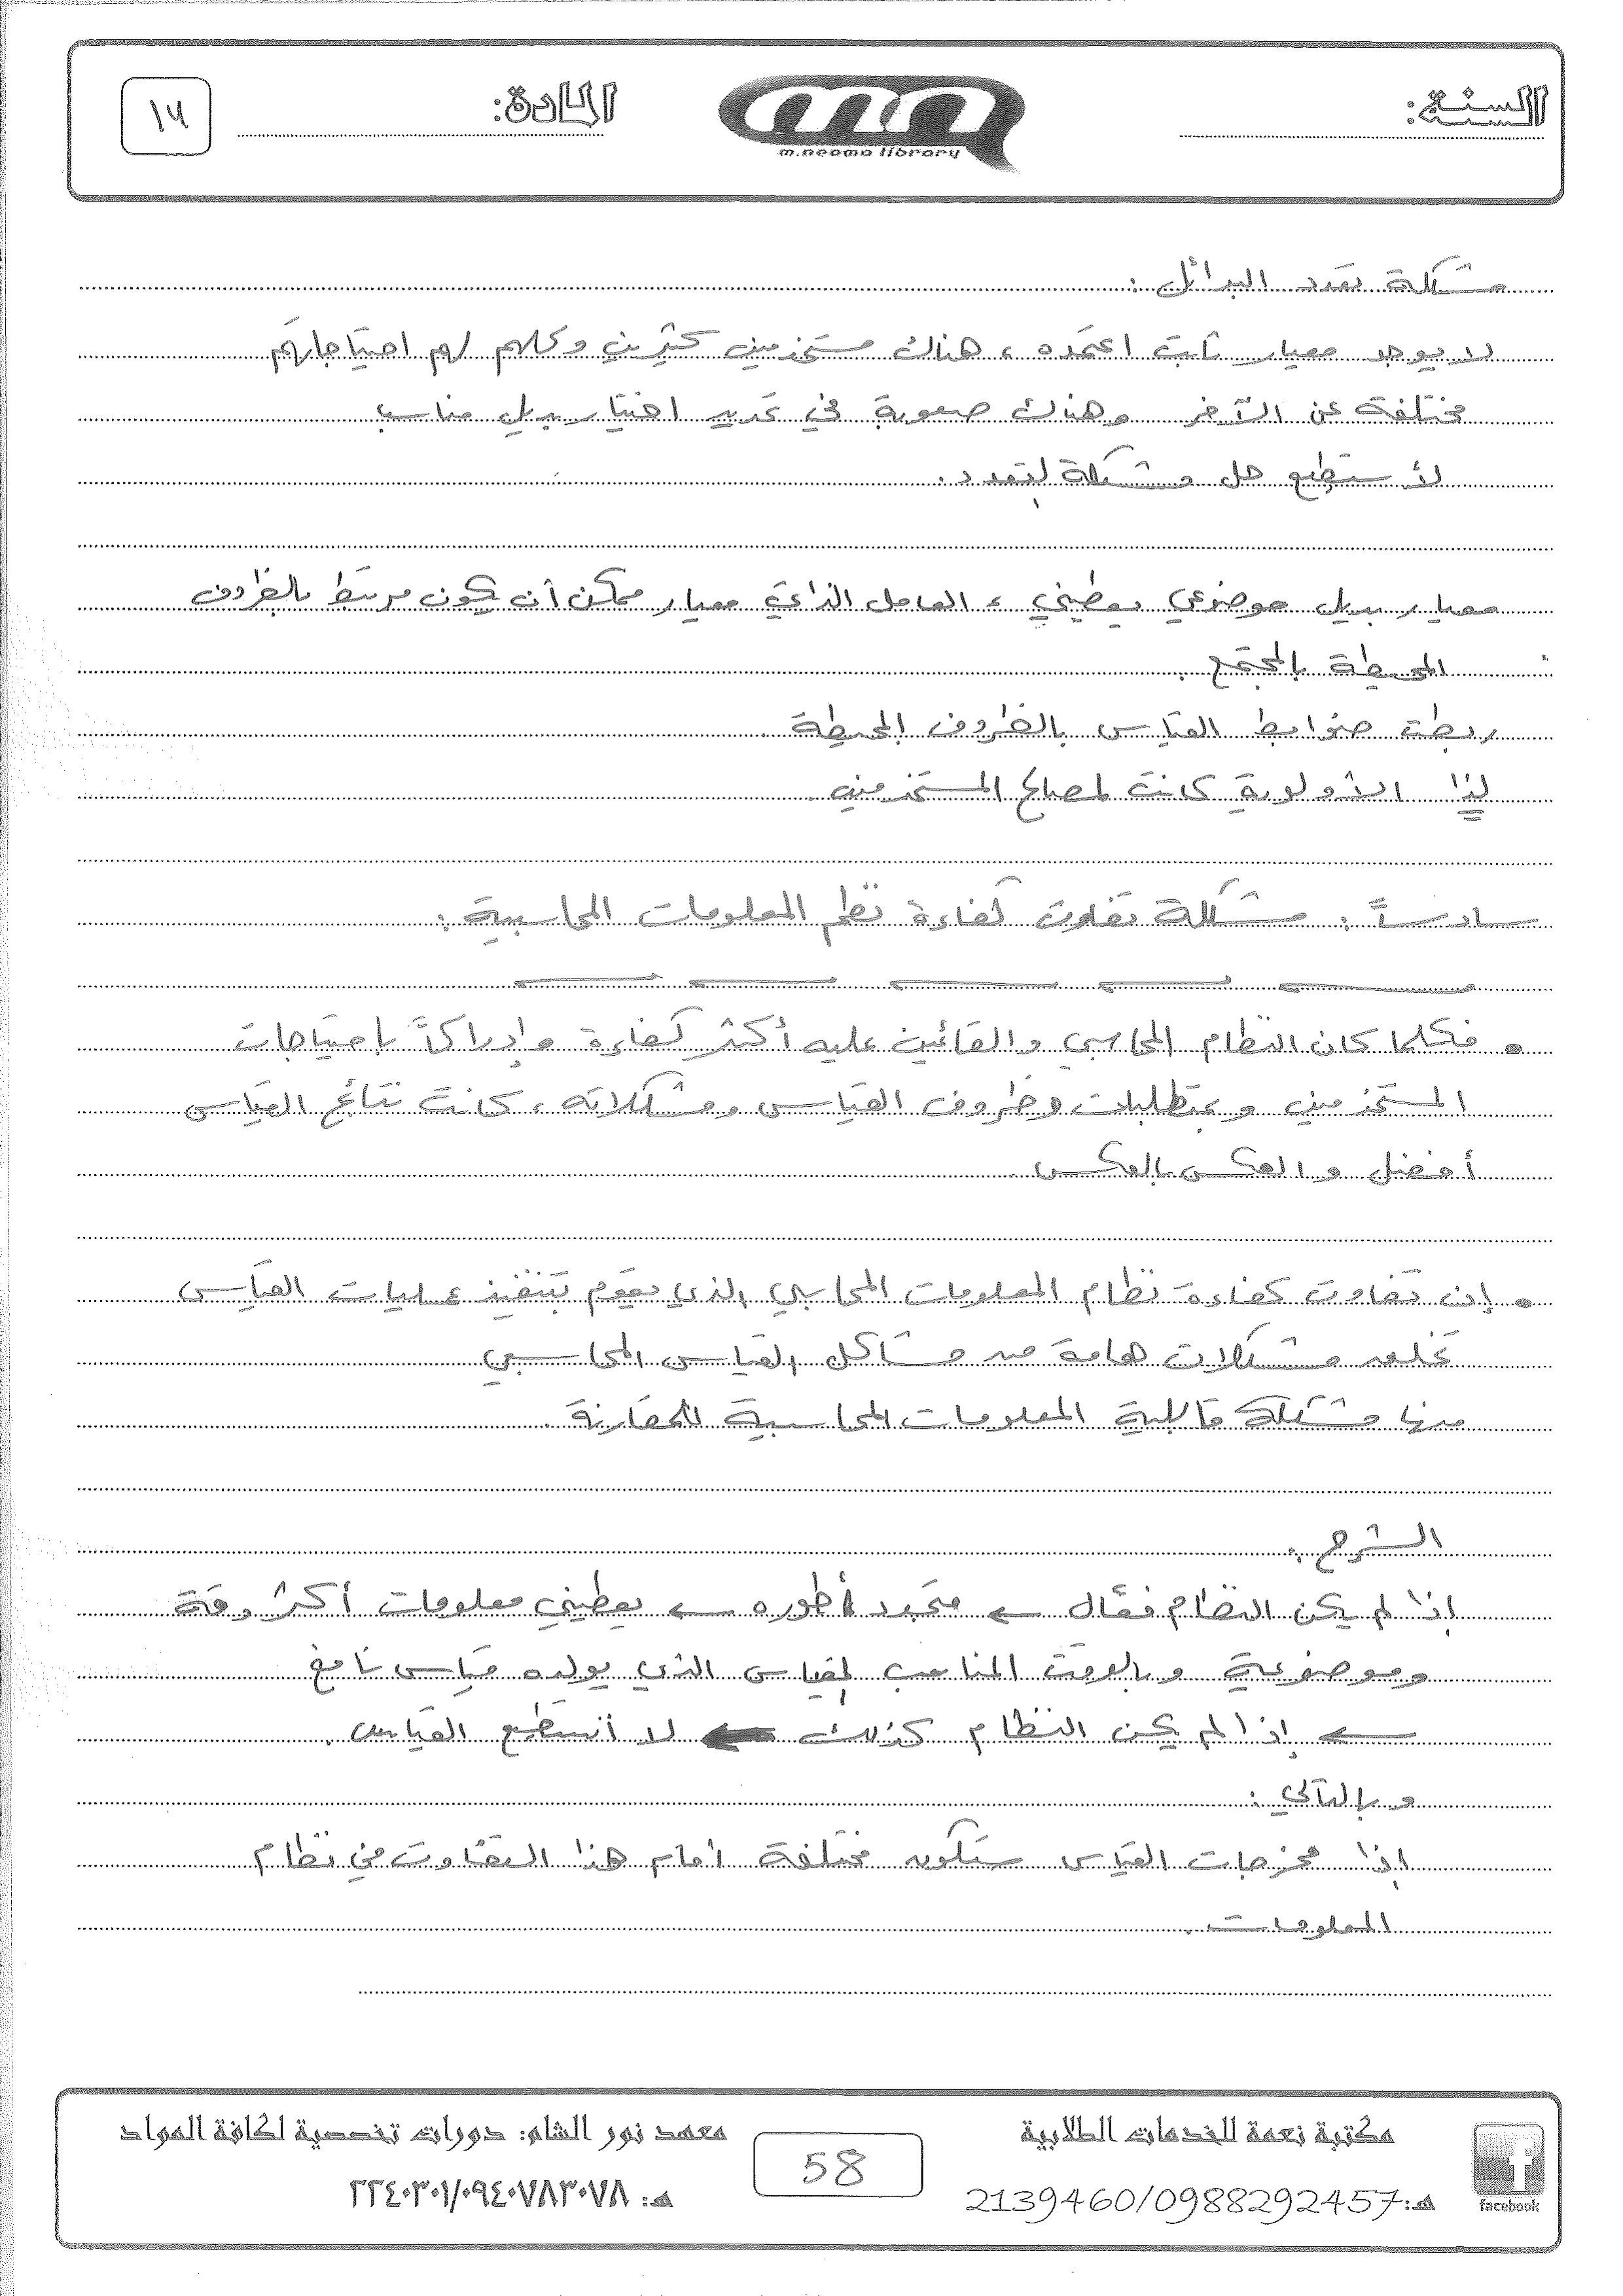 السنة:
المادة:
١٧
m.neoma library
مشكلة تعدد البدائل :
لا يوجد معيار ثابت اعتمده ، هناك مستخدمين كثيرين وكلهم لهم احتياجاتهم
مختلفة عن الآخر وهناك صعوبة في تحديد اختيار بديل مناسب
لأستطيع حل مشكلة التعدد .
معيار بديل موضوعي يعطيني ، العامل الذاتي معيار ممكن أن يكون مرتبط بالظروف
المحيطة بالمجتمع .
ربطت ضوابط القياس بالظروف المحيطة .
لذا الأولوية كانت لمصالح المستخدمين .
سادساً : مشكلة تفاوت كفاءة نظم المعلومات المحاسبية :
• فكلما كان النظام المحاسبي والقائمين عليه أكثر كفاءة وإدراكاً باحتياجات
المستخدمين وبمتطلبات وظروف القياس ومشكلاته ، كانت نتائج القياس
أفضل والعكس بالعكس .
• إن تفاوت كفاءة نظام المعلومات المحاسبي الذي يقوم بتنفيذ عمليات القياس
تخلق مشكلات هامة من مشاكل القياس المحاسبي
منها مشكلة قابلية المعلومات المحاسبية للمقارنة .
الشرح :
إذا لم يكن النظام فعّال ← متجدد أطوره ← يعطيني معلومات أكثر دقة
وموضوعية وبالوقت المناسب لقياس الذي يولده قياس نافع
← إذا لم يكن النظام كذلك ← لا أستطيع القياس .
وبالتالي :
إذا مخرجات القياس ستكون مختلفة أمام هذا التفاوت في نظام
المعلومات .
مكتبة نعمة للخدمات الطلابية
هـ: 2139460/0988292457
58
معهد نور الشام: دورات تخصصية لكافة المواد
هـ: ٢٢٤٠٣٠١/٠٩٤٠٧٨٣٠٧٨
facebook